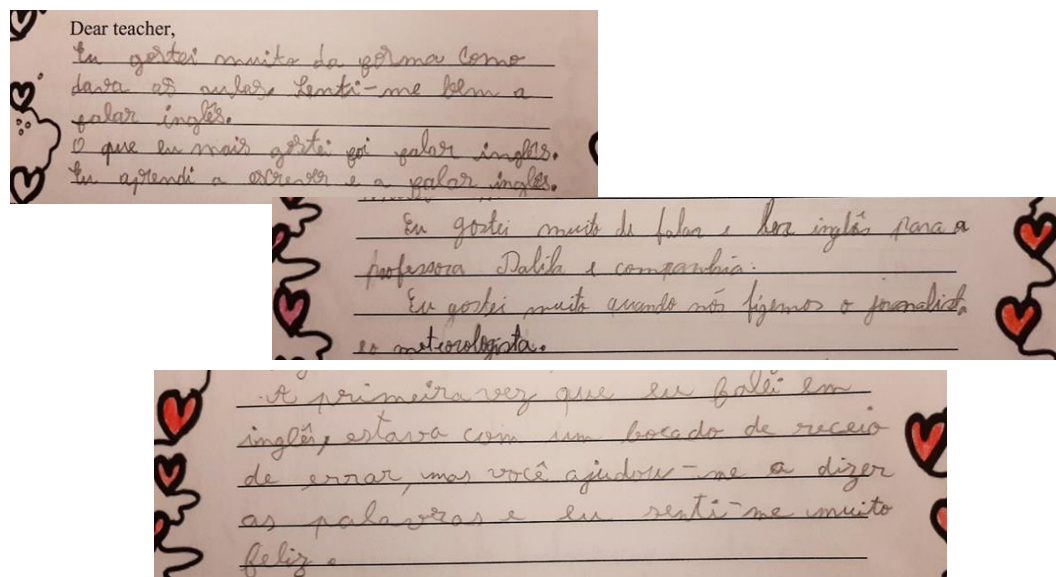 Dear teacher,
Eu gostei muito da forma como
dava as aulas. Senti-me bem a
falar inglês.
O que eu mais gostei foi falar inglês.
Eu aprendi a escrever e a falar inglês.
Eu gostei muito de falar e ler inglês para a
professora Dalila e companhia.
Eu gostei muito quando nós fizemos o jornalista
e o meteorologista.
A primeira vez que eu falei em
inglês, estava com um bocado de receio
de errar, mas você ajudou-me a dizer
as palavras e eu senti-me muito
feliz.